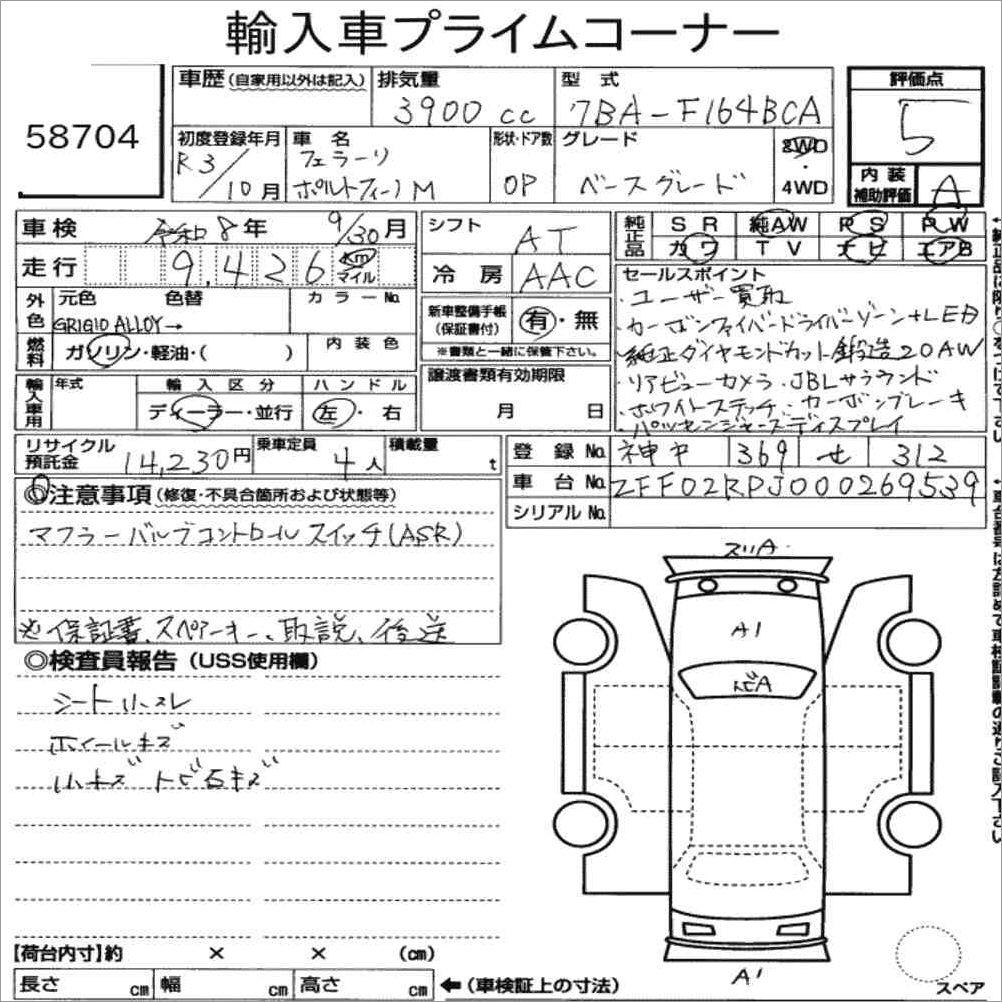 輸入車プライムコーナー
58704
車歴(自家用以外は記入)
排気量
3900 cc
型式
7BA-F164BCA
評価点
5
初度登録年月
R3/10月
車名
フェラーリ
ポルトフィーノM
形状・ドア数
OP
グレード
ベースグレード
2WD
・
4WD
内装
補助評価
A
車検
令和8年 9/30月
走行
9,426
Km
マイル
外色
元色
色替
カラーNo.
GRIGIO ALLOY→
燃料
ガソリン・軽油・( )
内装色
輸入車用
年式
輸入区分
ディーラー・並行
ハンドル
左・右
シフト
AT
冷房
AAC
新車整備手帳
(保証書付)
有・無
※書類と一緒に保管下さい。
譲渡書類有効期限
月 日
純正品
SR
純AW
PS
PW
カワ
TV
ナビ
エアB
セールスポイント
・ユーザー買取
・カーボンファイバードライバーゾーン+LED
・純正ダイヤモンドカット鍛造20AW
・リアビューカメラ・JBLサラウンド
・ホワイトステッチ・カーボンブレーキ
・パッセンジャーズディスプレイ
リサイクル
預託金
14,230円
乗車定員
4人
積載量
t
登録No.
神戸 369 せ 312
車台No.
ZFF02RPJ000269539
シリアルNo.
◎注意事項(修復・不具合箇所および状態等)
マフラーバルブコントロールスイッチ(ASR)
※保証書、スペアーキー、取説、後送
◎検査員報告(USS使用欄)
シート小スレ
ホイールキズ
小キズ トビ石キズ
スリA
A1
トビA
A1
【荷台内寸】約 × × (cm)
長さ cm
幅 cm
高さ cm
←(車検証上の寸法)
スペア